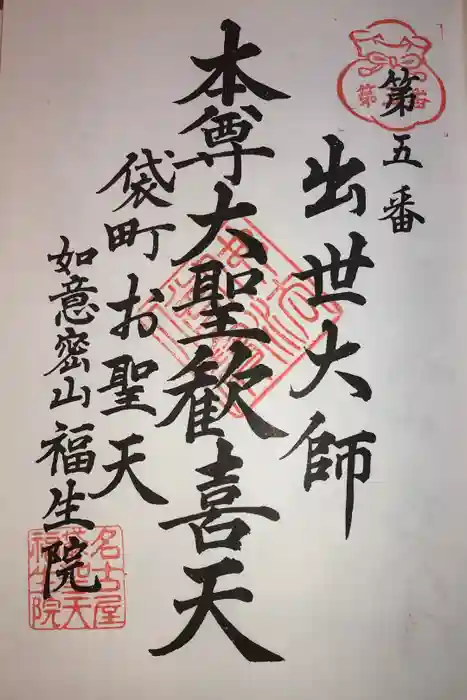 第五番
出世大師
本尊大聖歓喜天
袋町お聖天
如意密山福生院
名古屋
袋町聖天
福生院